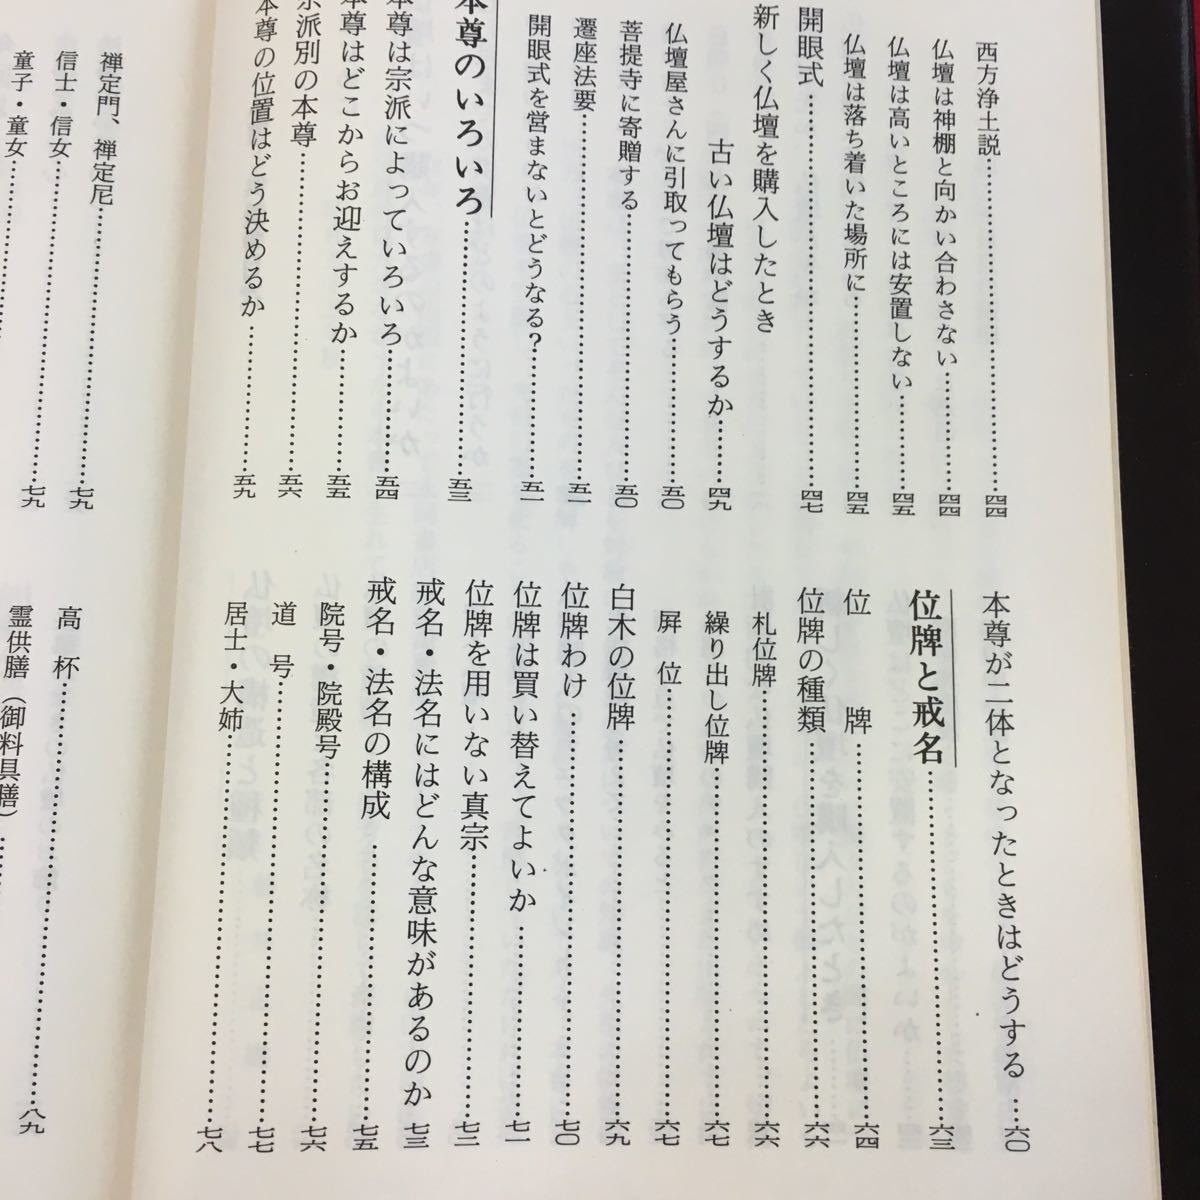 西方浄土説……………………四四
仏壇は神棚と向かい合わさない……四四
仏壇は高いところには安置しない……四五
仏壇は落ち着いた場所に……………四五
開眼式……………………………四七
新しく仏壇を購入したとき
古い仏壇はどうするか……四九
仏壇屋さんに引取ってもらう………五〇
菩提寺に寄贈する…………………五〇
遷座法要……………………………五一
開眼式を営まないとどうなる?……五一
本尊のいろいろ……………………五三
本尊は宗派によっていろいろ………五四
本尊はどこからお迎えするか………五五
宗派別の本尊………………………五六
本尊の位置はどう決めるか…………五九
本尊が二体となったときはどうする…六〇
位牌と戒名…………………………六三
位牌…………………………………六四
位牌の種類…………………………六六
札位牌………………………………六六
繰り出し位牌………………………六七
屛位…………………………………六七
白木の位牌…………………………六九
位牌わけ……………………………七〇
位牌は買い替えてよいか……………七一
位牌を用いない真宗…………………七二
戒名・法名にはどんな意味があるのか…七三
戒名・法名の構成……………………七五
院号・院殿号…………………………七六
道号…………………………………七七
居士・大姉……………………………七八
禅定門、禅定尼………………………七九
信士・信女……………………………七九
童子・童女……………………………七九
高杯……………………………………八九
霊供膳(御料具膳)……